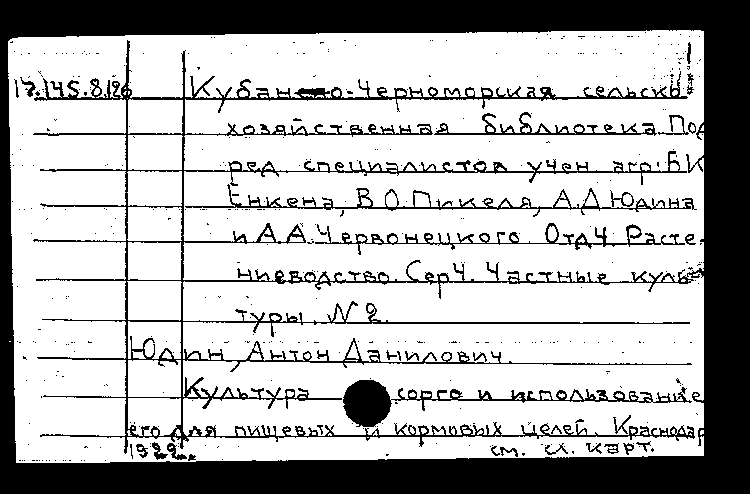 17.145.8.126 Кубано-Черноморская сельско-
хозяйственная библиотека Под
ред. специалистов учен. агр. Б К
Енкена, В О. Пикеля, А. Д Юдина
и А. А. Червонецкого. Отд 4. Расте-
ниеводство. Сер 4. Частные куль-
туры. № 2.
Юдин, Антон Данилович.
Культура сорго и использование
его для пищевых и кормовых целей. Краснодар
см. сл. карт.